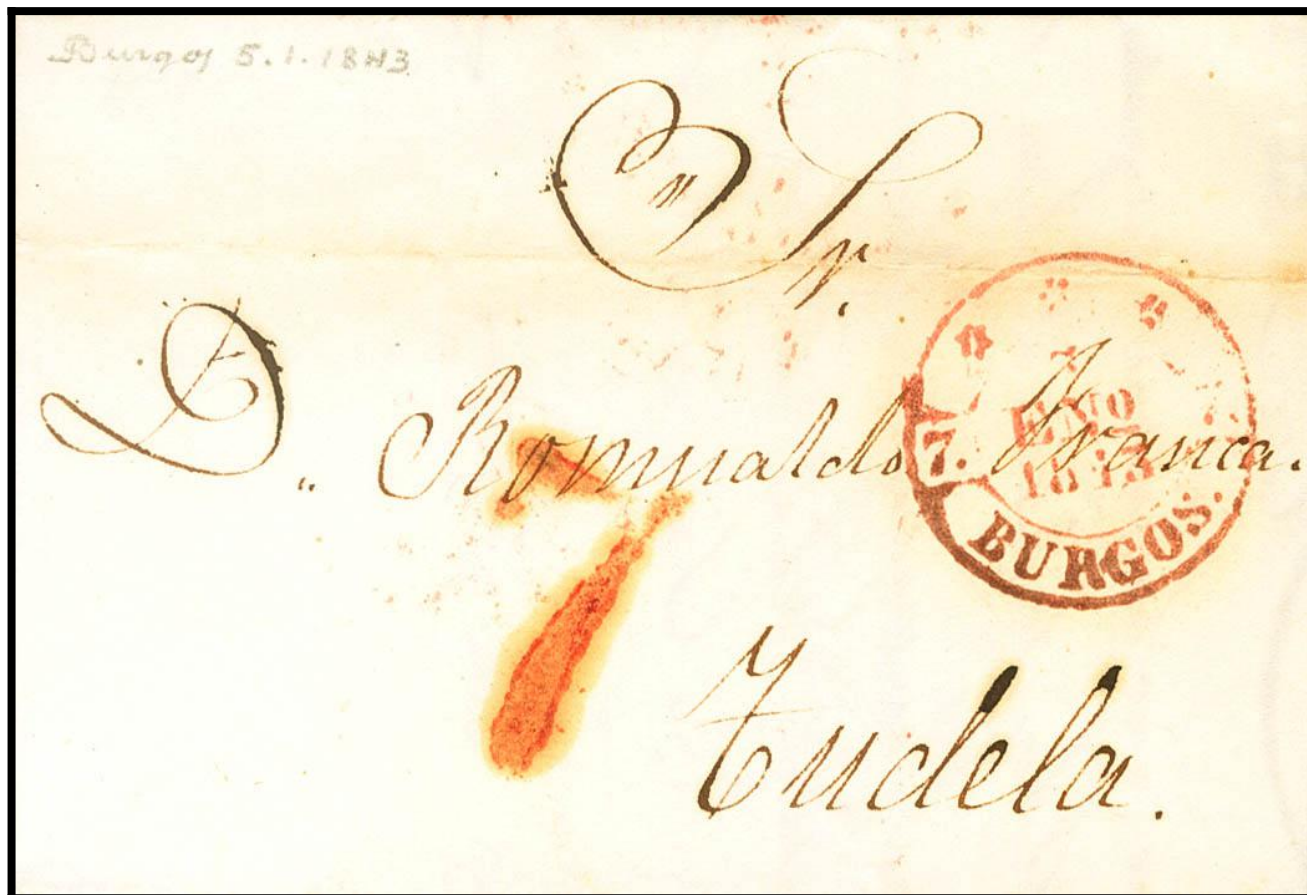 Burgos 5.1.1843
Sr.
D. Romualdo Franca.
7
7.
7
ENO
1843
BURGOS.
Tudela.